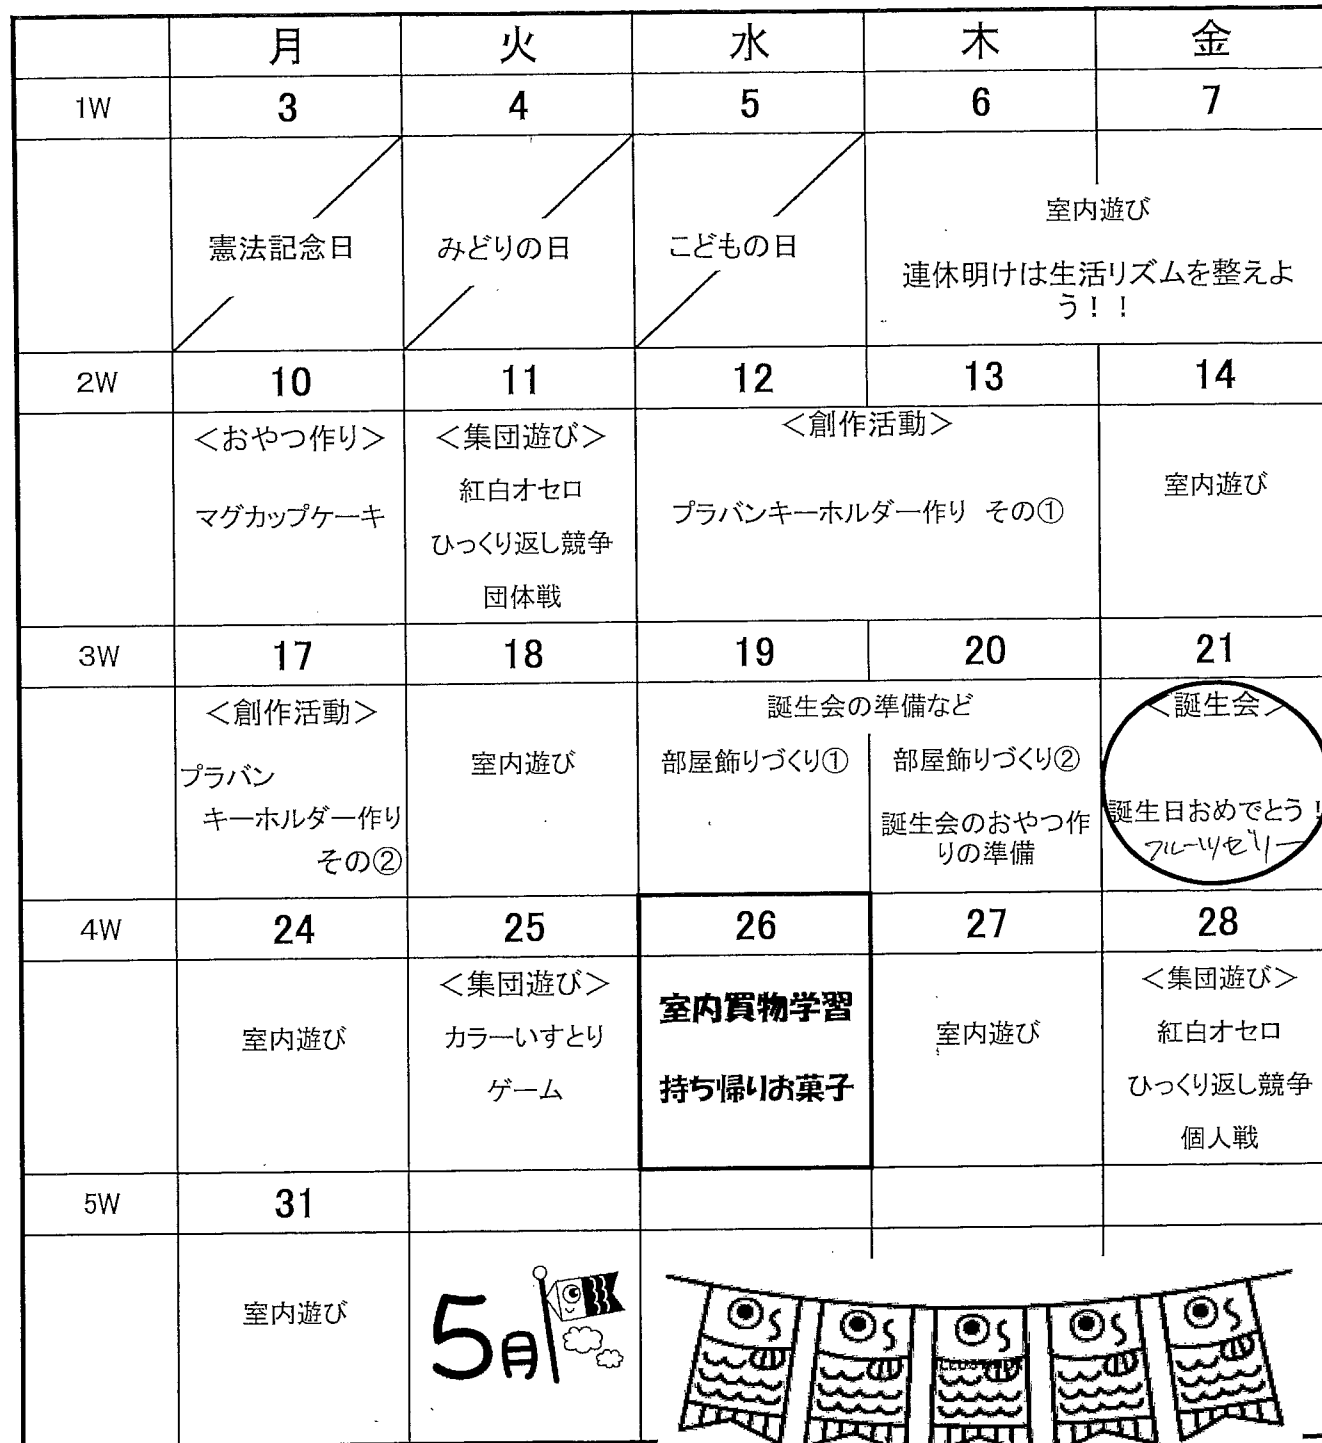 月 火 水 木 金
1W 3 4 5 6 7
憲法記念日 みどりの日 こどもの日
室内遊び
連休明けは生活リズムを整えよ
う！！
2W 10 11 12 13 14
＜おやつ作り＞
マグカップケーキ
＜集団遊び＞
紅白オセロ
ひっくり返し競争
団体戦
＜創作活動＞
プラバンキーホルダー作り その①
室内遊び
3W 17 18 19 20 21
＜創作活動＞
プラバン
キーホルダー作り
その②
室内遊び
誕生会の準備など
部屋飾りづくり①
部屋飾りづくり②
誕生会のおやつ作
りの準備
＜誕生会＞
誕生日おめでとう！
フルーツゼリー
4W 24 25 26 27 28
室内遊び
＜集団遊び＞
カラーいすとり
ゲーム
室内買物学習
持ち帰りお菓子
室内遊び
＜集団遊び＞
紅白オセロ
ひっくり返し競争
個人戦
5W 31
室内遊び
5月